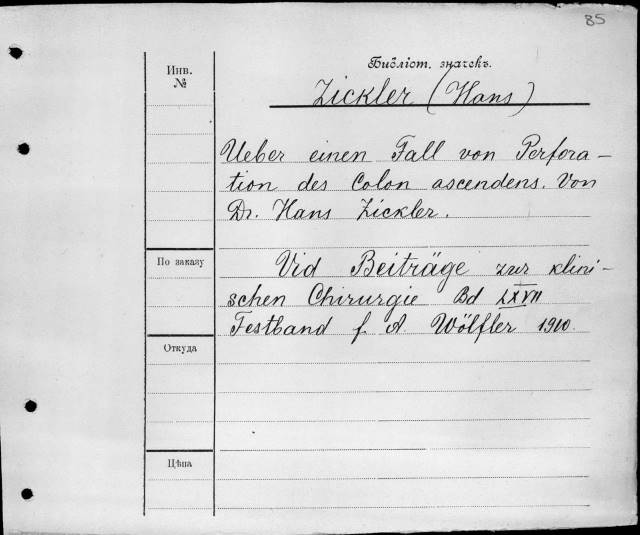 85
Инв.
№
Библіот. значекъ.
Zickler (Hans)
Ueber einen Fall von Perfora-
tion des Colon ascendens. Von
Dr. Hans Zickler.
По заказу
Vid Beiträge zur klini-
schen Chirurgie Bd LXVII
Festband f. A Wölfler 1910.
Откуда
Цѣна